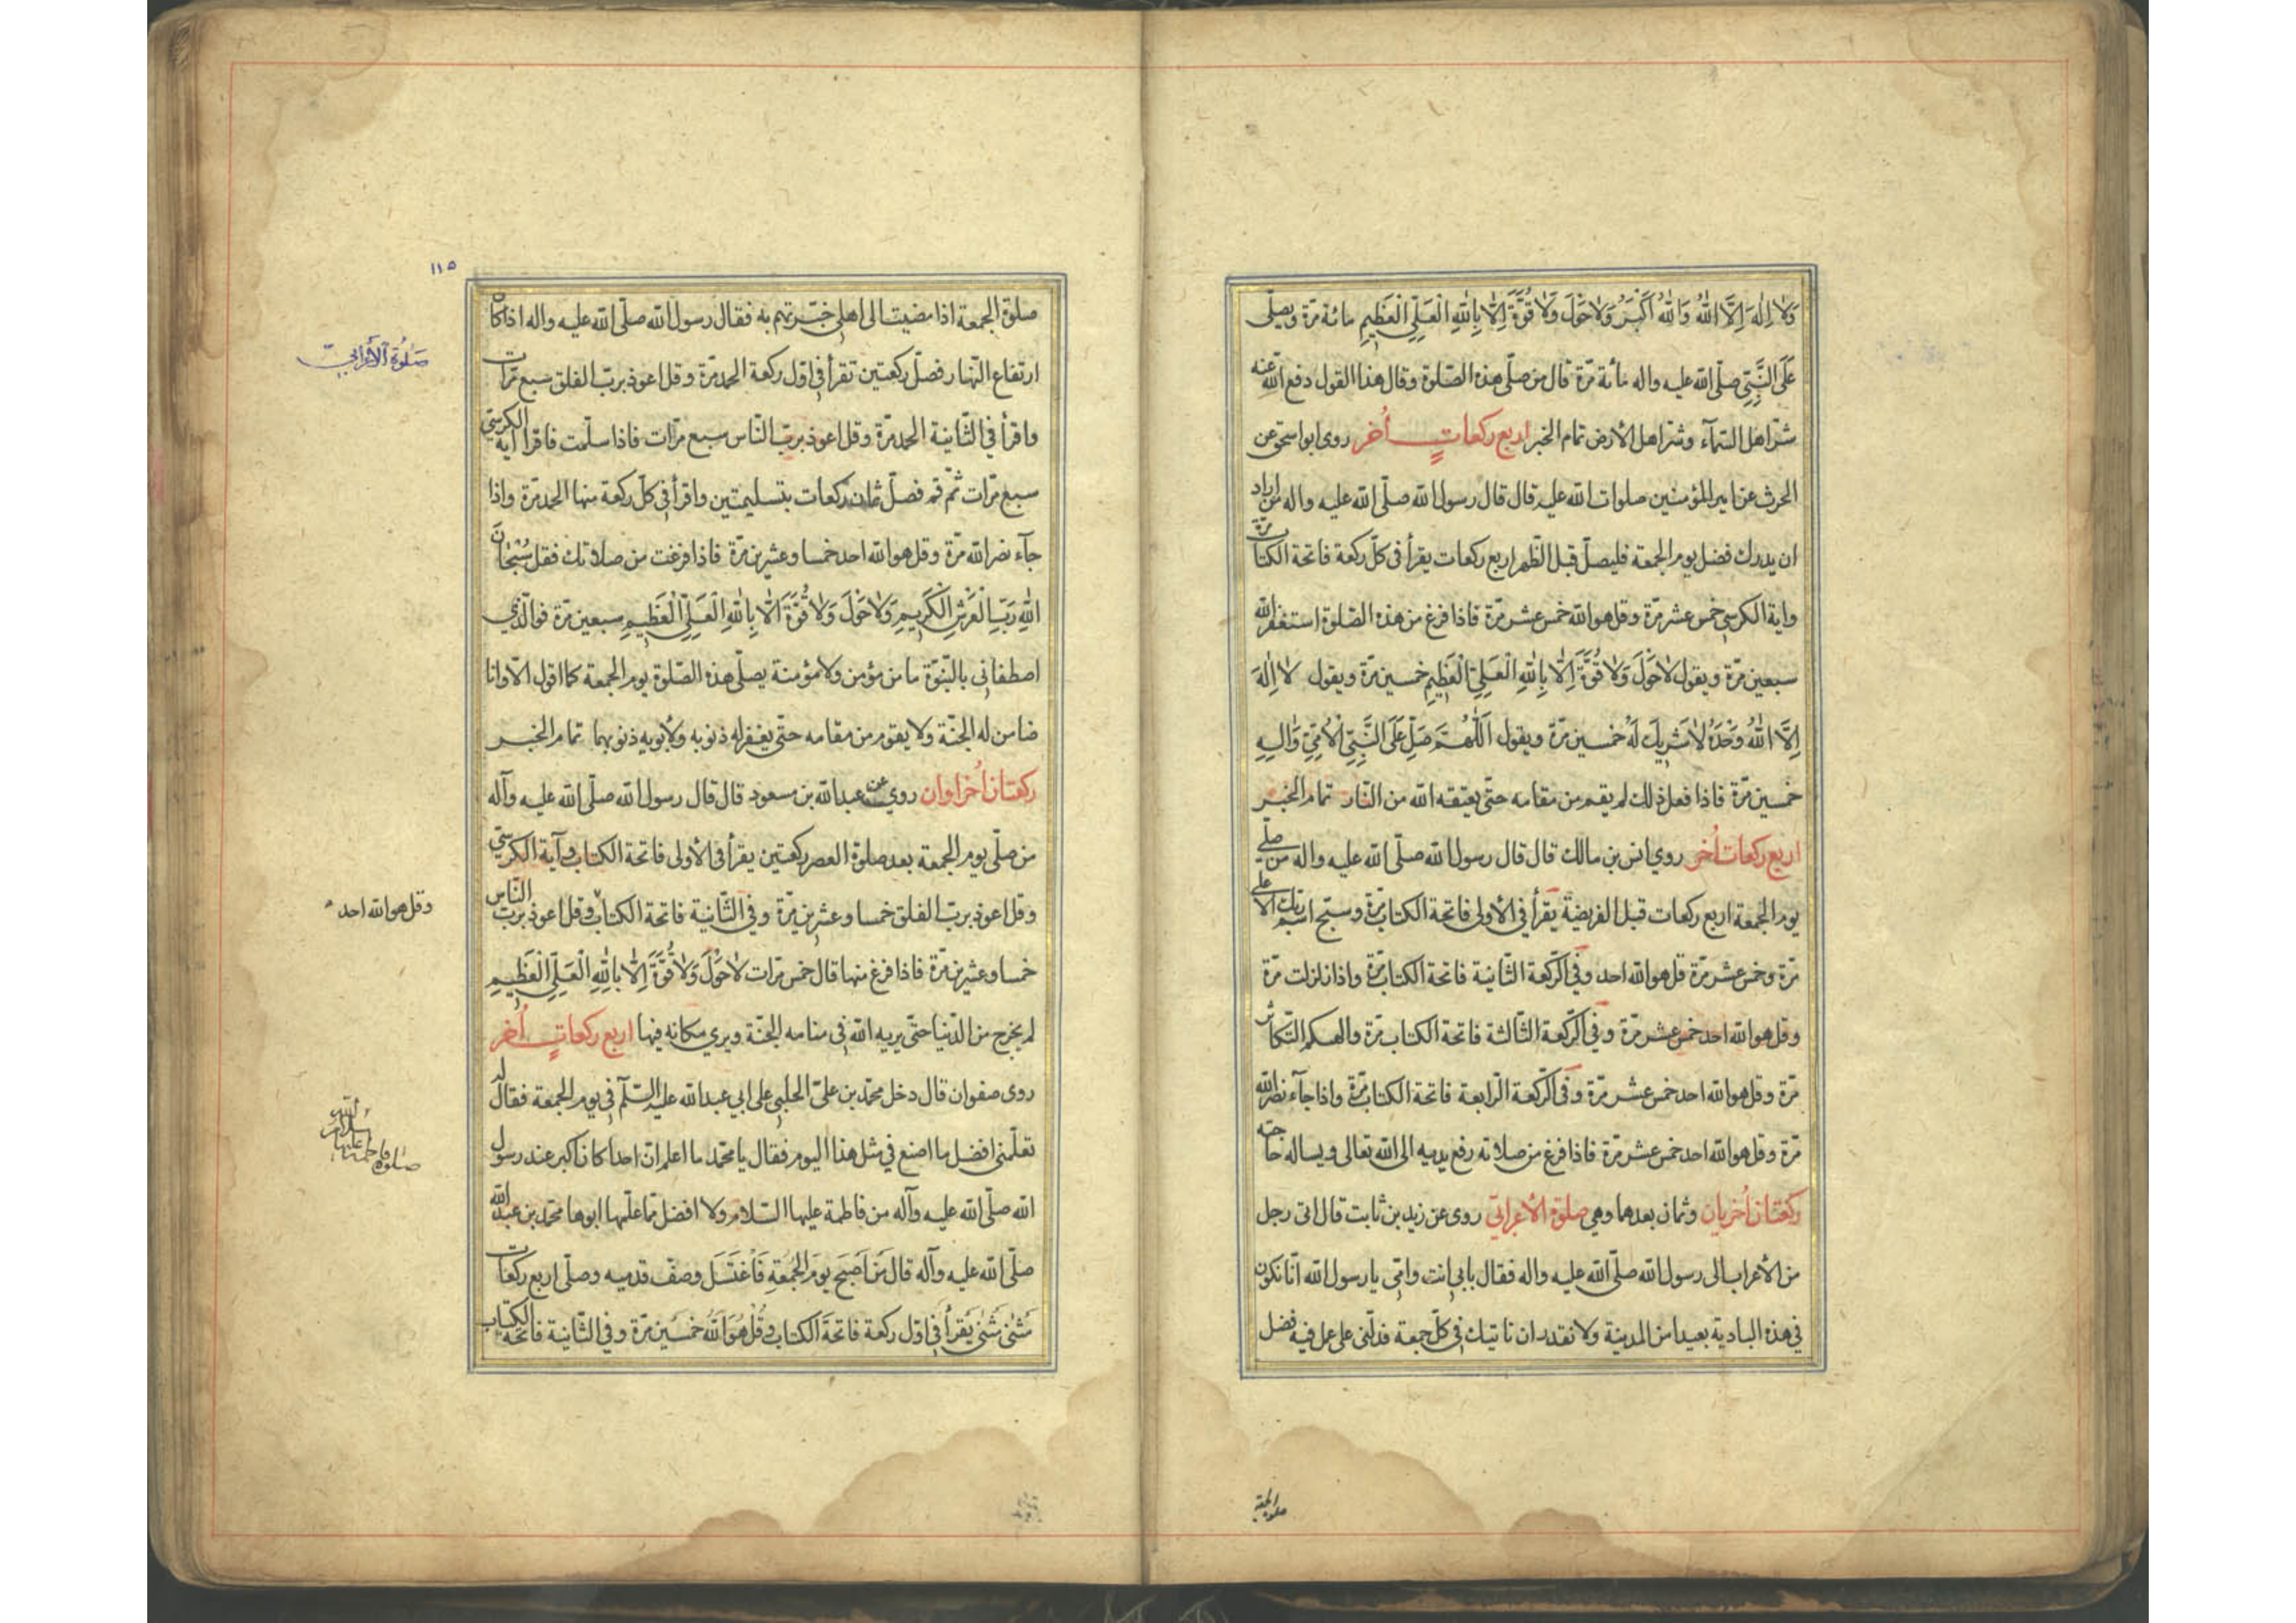 وَلَا اِلٰهَ اِلَّا اللّٰهُ وَاللّٰهُ اَكْبَرُ وَلَا حَوْلَ وَلَا قُوَّةَ اِلَّا بِاللّٰهِ الْعَلِيِّ الْعَظِيمِ مائة مرّة ويصلّى
عَلَى النَّبِيِّ صلّى الله عليه واله مائة مرّة قال من صلّى هذه الصّلوة وقال هذا القول دفع الله عنه
شرّ اهل السّمآء وشرّ اهل الأرض تمام الخبر اربع ركعاتٍ أُخر روى ابو اسحق عن
الحرث عن امير المؤمنين صلوات الله عليه قال قال رسول الله صلّى الله عليه واله من اراد
ان يدرك فضل يوم الجمعة فليصلّ قبل الظّهر اربع ركعات يقرأ فى كلّ ركعة فاتحة الكتاب مرّة
واية الكرسي خمس عشر مرّة وقل هو الله خمس عشر مرّة فاذا فرغ من هذه الصّلوة استغفر الله
سبعين مرّة ويقول لَا حَوْلَ وَلَا قُوَّةَ اِلَّا بِاللّٰهِ الْعَلِيِّ الْعَظِيمِ خمسين مرّة ويقول لَا اِلٰهَ
اِلَّا اللّٰهُ وَحْدَهُ لَا شَرِيكَ لَهُ خمسين مرّة ويقول اَللّٰهُمَّ صَلِّ عَلَى النَّبِيِّ الْاُمِّيِّ وَالِهِ
خمسين مرّة فاذا فعل ذلك لم يقم من مقامه حتّى يعتقه الله من النّار تمام الخبر
اربع ركعات أُخر روي انس بن مالك قال قال رسول الله صلّى الله عليه واله من صلّى
يوم الجمعة اربع ركعات قبل الفريضة يقرأ في الأولى فاتحة الكتاب مرّة وسبّح اسم ربّك الاعلى
مرّة وخمس عشر مرّة قل هو الله احد وفي الرّكعة الثّانية فاتحة الكتاب مرّة واذا زلزلت مرّة
وقل هو الله احد خمس عشر مرّة وفي الرّكعة الثّالثة فاتحة الكتاب مرّة والهيكم التّكاثر
مرّة وقل هو الله احد خمس عشر مرّة وفى الرّكعة الرّابعة فاتحة الكتاب مرّة واذا جآء نصر الله
مرّة وقل هو الله احد خمس عشر مرّة فاذا فرغ من صلاته رفع يديه الى الله تعالى ويساله حاجته
ركعتان أُخريان وثمان بعدهما وهي صلوة الأعرابيّ روى عن زيد بن ثابت قال اتى رجل
من الأعراب الى رسول الله صلّى الله عليه واله فقال بابي انت وامّي يا رسول الله انّا نكون
في هذه البادية بعيدا من المدينة ولا نقدر ان ناتيك في كلّ جمعة فدلّني على عمل فيه فضل
صلوة الجمعة
١١٥
صلوة الجمعة اذا مضيت الى اهلي خبّرتهم به فقال رسول الله صلّى الله عليه واله اذا كان
ارتفاع النّهار فصلّ ركعتين تقرأ في اوّل ركعة الحمد مرّة وقل اعوذ بربّ الفلق سبع مرّات
واقرأ في الثّانية الحمد مرّة وقل اعوذ بربّ النّاس سبع مرّات فاذا سلّمت فاقرا اية الكرسيّ
سبع مرّات ثمّ قم فصلّ ثمان ركعات بتسليمتين واقرأ في كلّ ركعة منها الحمد مرّة واذا
جآء نصر الله مرّة وقل هو الله احد خمسا وعشرين مرّة فاذا فرغت من صلاتك فقل سُبْحَانَ
اللّٰهِ رَبِّ الْعَرْشِ الْكَرِيمِ وَلَا حَوْلَ وَلَا قُوَّةَ اِلَّا بِاللّٰهِ الْعَلِيِّ الْعَظِيمِ سبعين مرّة فو الّذي
اصطفاني بالنّبوّة ما من مؤمن ولا مؤمنة يصلّى هذه الصّلوة يوم الجمعة كما اقول الّا وانا
ضامن له الجنّة ولا يقوم من مقامه حتّى يغفر له ذنوبه ولأبويه ذنوبهما تمام الخبر
ركعتان أُخراوان روي عن عبد الله بن مسعود قال قال رسول الله صلّى الله عليه وآله
من صلّى يوم الجمعة بعد صلوة العصر ركعتين يقرأ فى الأولى فاتحة الكتاب وآية الكرسيّ
وقل اعوذ بربّ الفلق خمسا وعشرين مرّة وفي الثّانية فاتحة الكتاب وقل اعوذ بربّ النّاس
خمسا وعشرين مرّة فاذا فرغ منها قال خمس مرّات لَا حَوْلَ وَلَا قُوَّةَ اِلَّا بِاللّٰهِ الْعَلِيِّ الْعَظِيمِ
لم يخرج من الدّنيا حتّى يريه الله في منامه الجنّة ويرى مكانه فيها اربع ركعاتٍ أُخر
روى صفوان قال دخل محمّد بن علىّ الحلبي على ابي عبد الله عليه السّلم في يوم الجمعة فقال له
تعلّمني افضل ما اصنع في مثل هذا اليوم فقال يا محمّد ما اعلم انّ احدا كان اكبر عند رسول
الله صلّى الله عليه وآله من فاطمة عليها السّلام ولا افضل ممّا علّمها ابوها محمّد بن عبد الله
صلّى الله عليه وآله قال مَنْ اَصْبَحَ يَوْمَ الجُمُعَةِ فَاغْتَسَلَ وصفّ قدميه وصلّى اربع ركعات
مَثْنى مَثْنى يَقْرأ في اوّل ركعة فاتحة الكتاب وقُلْ هُوَ اللّٰهُ خمسين مرّة وفي الثّانية فاتحة الكتاب
صَلٰوة الأَعْرابيّ
وقل هو الله احد
صلوة فاطمة عليها سلام الله